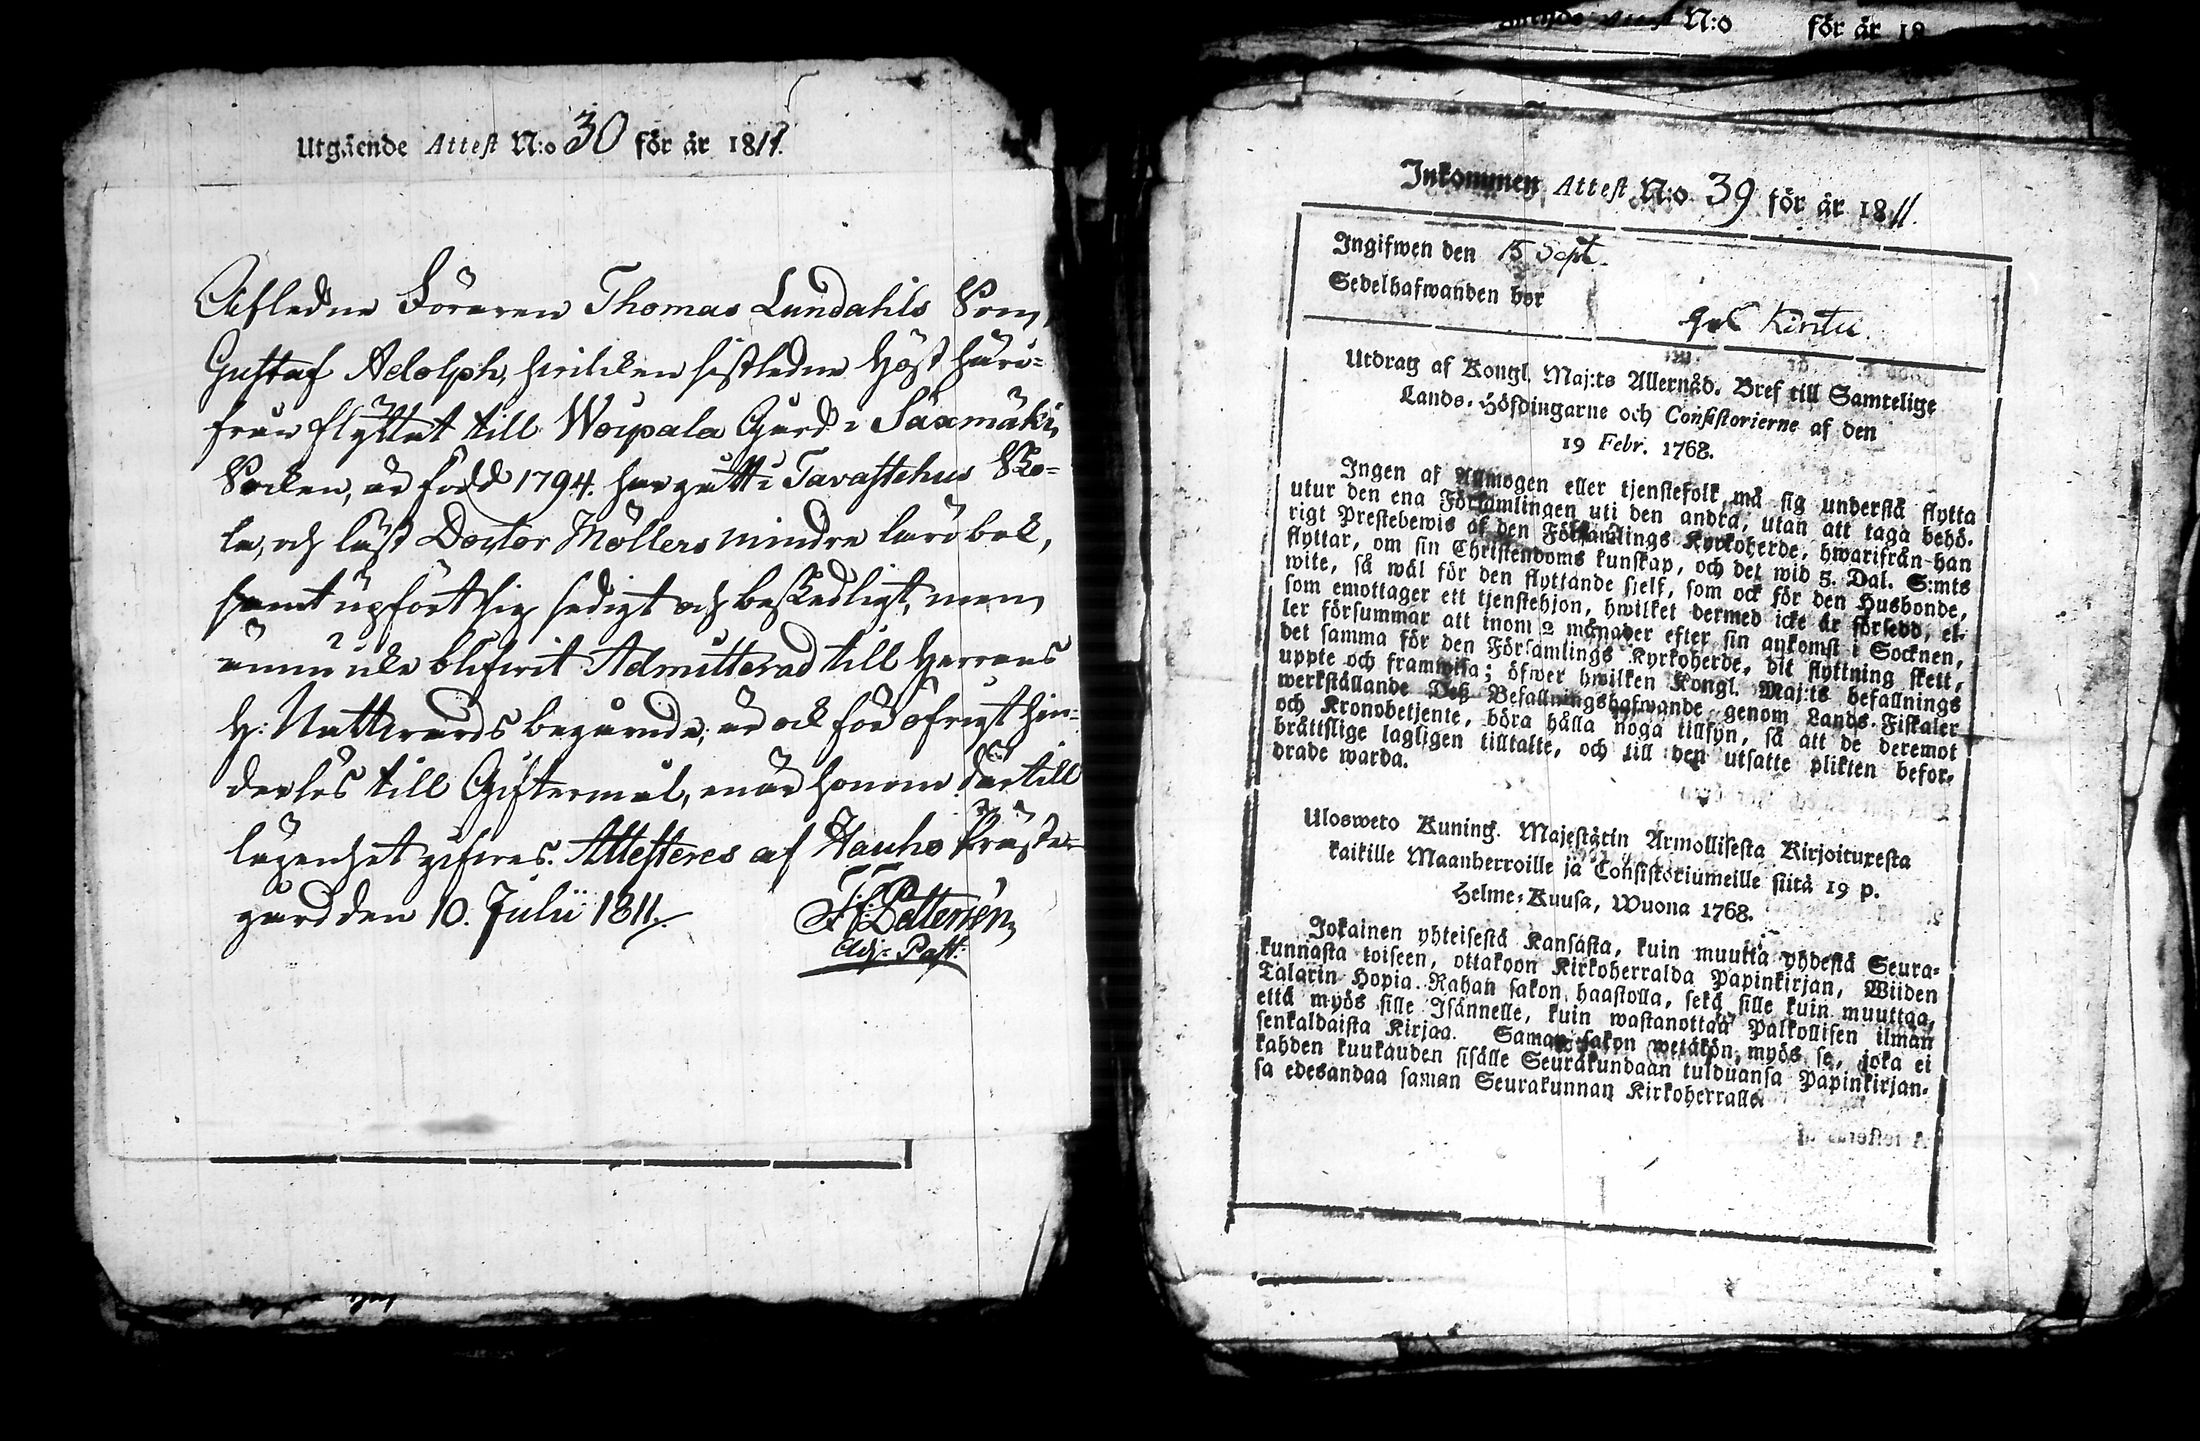 Utgående Attest N:o 30 för år 1811.
Afledne Föraren Thomas Lundahls Son,
Gustaf Adolph, hvilken sistledne Höst häri-
från flyttat till Woipala Gård i Sääxmäki
Socken, är född 1794. har gått i Tavastehus Sko-
la, och läst Doctor Möllers mindre lärobok,
samt upfört sig sedigt och beskedligt, men
ännu icke blifwit Admitterad till Herrans
H: Nattwards begående; är ock för öfrigt hin-
derlös till Giftermål, enär honom där till
lägenhet gifwes. Attesteres af Hauho Präste-
gård den 10. Julii 1811.
Adj: Past:
N:o för år 18
Inkommen Attest N:o 39 för år 1811.
Ingifwen den 15 Sept.
Sedelhafwanden bor
Utdrag af Kongl. Maj:ts Allernåd. Bref till Samtelige
Lands-Höfdingarne och Consistorierne af den
19 Febr. 1768.
Ingen af Allmogen eller tjenstefolk må sig understå flytta
utur den ena Församlingen uti den andra, utan att taga behö-
rigt Prestebewis af den Församlings Kyrkoherde, hwarifrån han
flyttar, om sin Christendoms kunskap, och det wid 5. Dal. S:mts
wite, så wäl för den flyttande sjelf, som ock för den Husbonde,
som emottager ett tjenstehjon, hwilket dermed icke är försedd, el-
ler försummar att inom 2 månader efter sin ankomst i Socknen,
det samma för den Församlings Kyrkoherde, dit flyttning skett,
uppte och framwisa; öfwer hwilken Kongl. Maj:ts befallnings
werkställande Deß Befallningshafwande genom Lands-Fiskaler
och Kronobetjente, böra hålla noga tillsyn, så att de deremot
bråttslige lagligen tilltalte, och till den utsatte plikten befor-
drade warda.
Ulosweto Kuning. Majestätin Armollisesta Kirjoituxesta
kaikille Maanherroille ja Consistoriumeille siitä 19 p.
Helme-Kuusa, Wuona 1768.
Jokainen yhteisestä Kansasta, kuin muutta yhdestä Seura-
kunnasta toiseen, ottakoon Kirkoherralda Papinkirjan, Wiiden
Talarin Hopia-Rahan sakon haastolla, sekä sille kuin muuttaa,
että myös sille Isännelle, kuin wastanottaa Palkollisen ilman
senkaldaista Kirjaa. Saman sakon wetäkön myös se, joka ei
kahden kuukauden sisälle Seurakundaan tulduansa Papinkirjan-
sa edesandaa saman Seurakunnan Kirkoherralle.